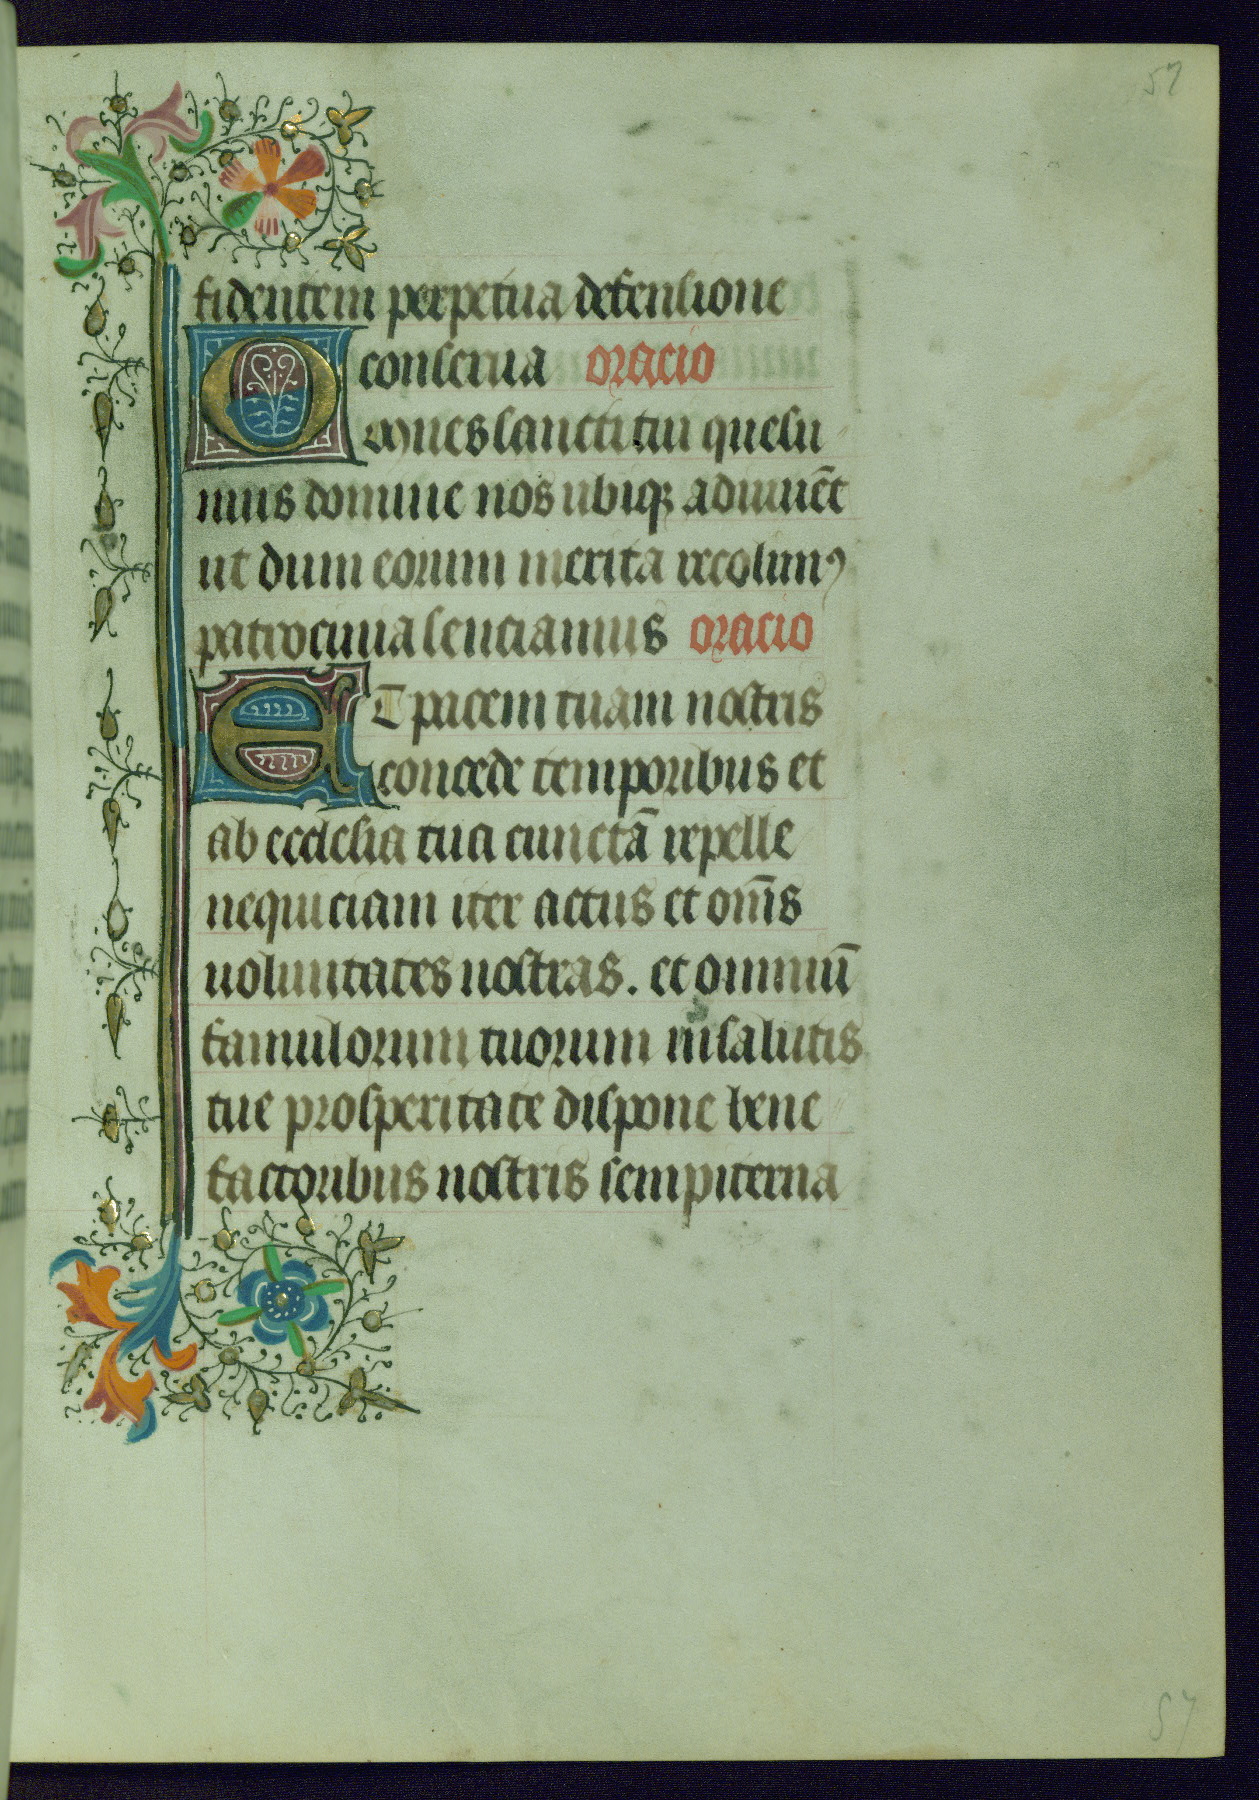 57
fidentem perpetua defensione
conserua oracio
Omnes sancti tui quesu
mus domine nos ubiqꝫ adiuuēt
ut dum eorum merita recolimꝰ
patrocinia senciamus oracio
ET pacem tuam nostris
concede temporibus et
ab ecclesia tua cunctā repelle
nequiciam iter actus et om̅s
uoluntates nostras. et omniū
famulorum tuorum in salutis
tue prosperitate dispone bene
factoribus nostris sempiterna
57